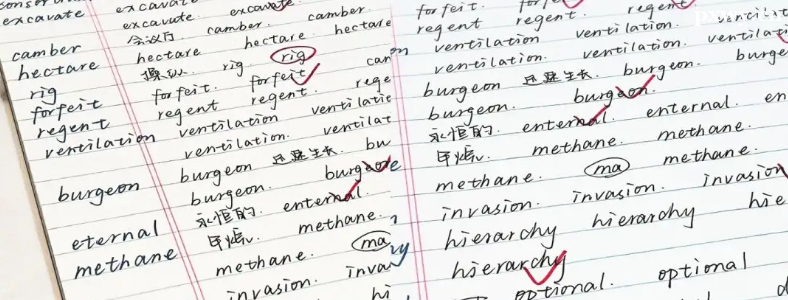 excavate
camber
hectare
rig
forfeit
regent
ventilation
burgeon
eternal
methane
excavate excavate
camber. camber.
hectare hectare hectare
rig rig
forfeit. forfeit
regent regent. rege
ventilation ventilatio
ventilation. ventilat
burgeon 迅速生长. bu
burgeon.
永恒的. enternal.
甲烷. methane.
methane. ma
invasion. inva
hi
forfeit.
regent regent. regent
ventilation ventilation.
ventilation ventilation. ventilati
burgeon 迅速生长. burgeon. burge
burgeon.
永恒的. enternal. enternal. en
甲烷. methane. methane.
methane. ma methane.
invasion. invasion. invasion
hierarchy hierarchy hie
hierarchy
optional. optional